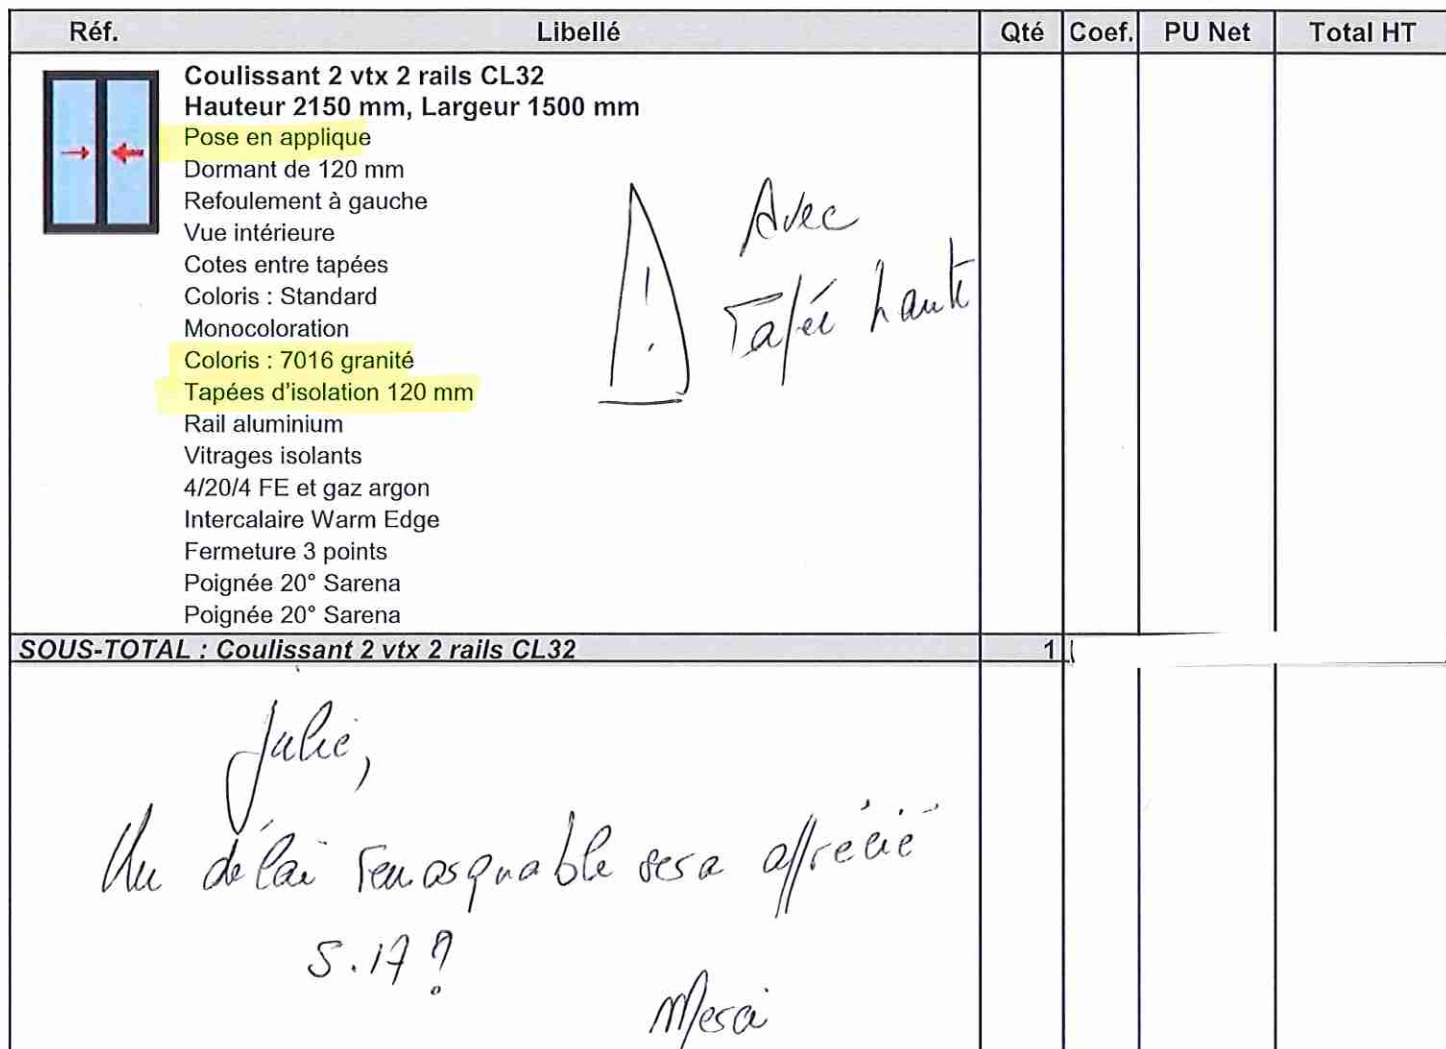 Réf. Libellé Qté Coef. PU Net Total HT
Coulissant 2 vtx 2 rails CL32
Hauteur 2150 mm, Largeur 1500 mm
Pose en applique
Dormant de 120 mm
Refoulement à gauche
Vue intérieure
Cotes entre tapées
Coloris : Standard
Monocoloration
Coloris : 7016 granité
Tapées d'isolation 120 mm
Rail aluminium
Vitrages isolants
4/20/4 FE et gaz argon
Intercalaire Warm Edge
Fermeture 3 points
Poignée 20° Sarena
Poignée 20° Sarena
! Avec
Tapée haute
SOUS-TOTAL : Coulissant 2 vtx 2 rails CL32 1
Julie,
Un délai remarquable sera apprécié
S.17 ?
Merci